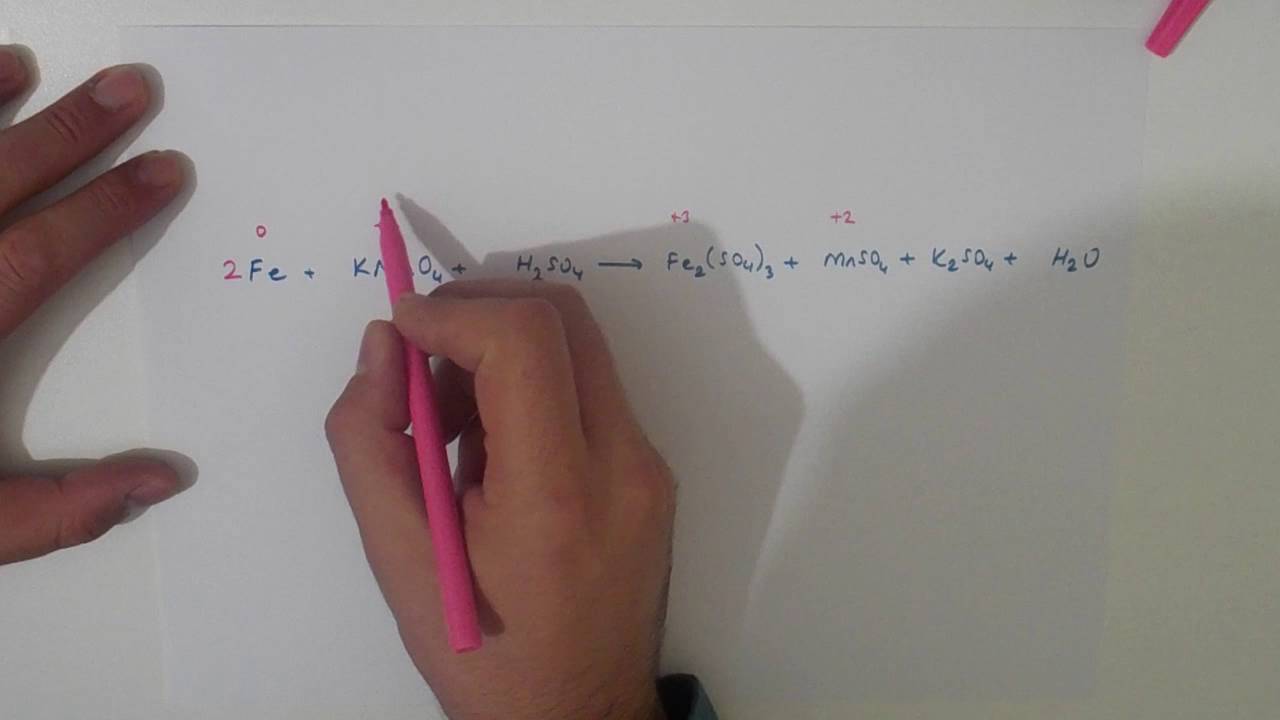 0 +3 +2
2Fe + KMnO₄ + H₂SO₄ ⟶ Fe₂(SO₄)₃ + MnSO₄ + K₂SO₄ + H₂O